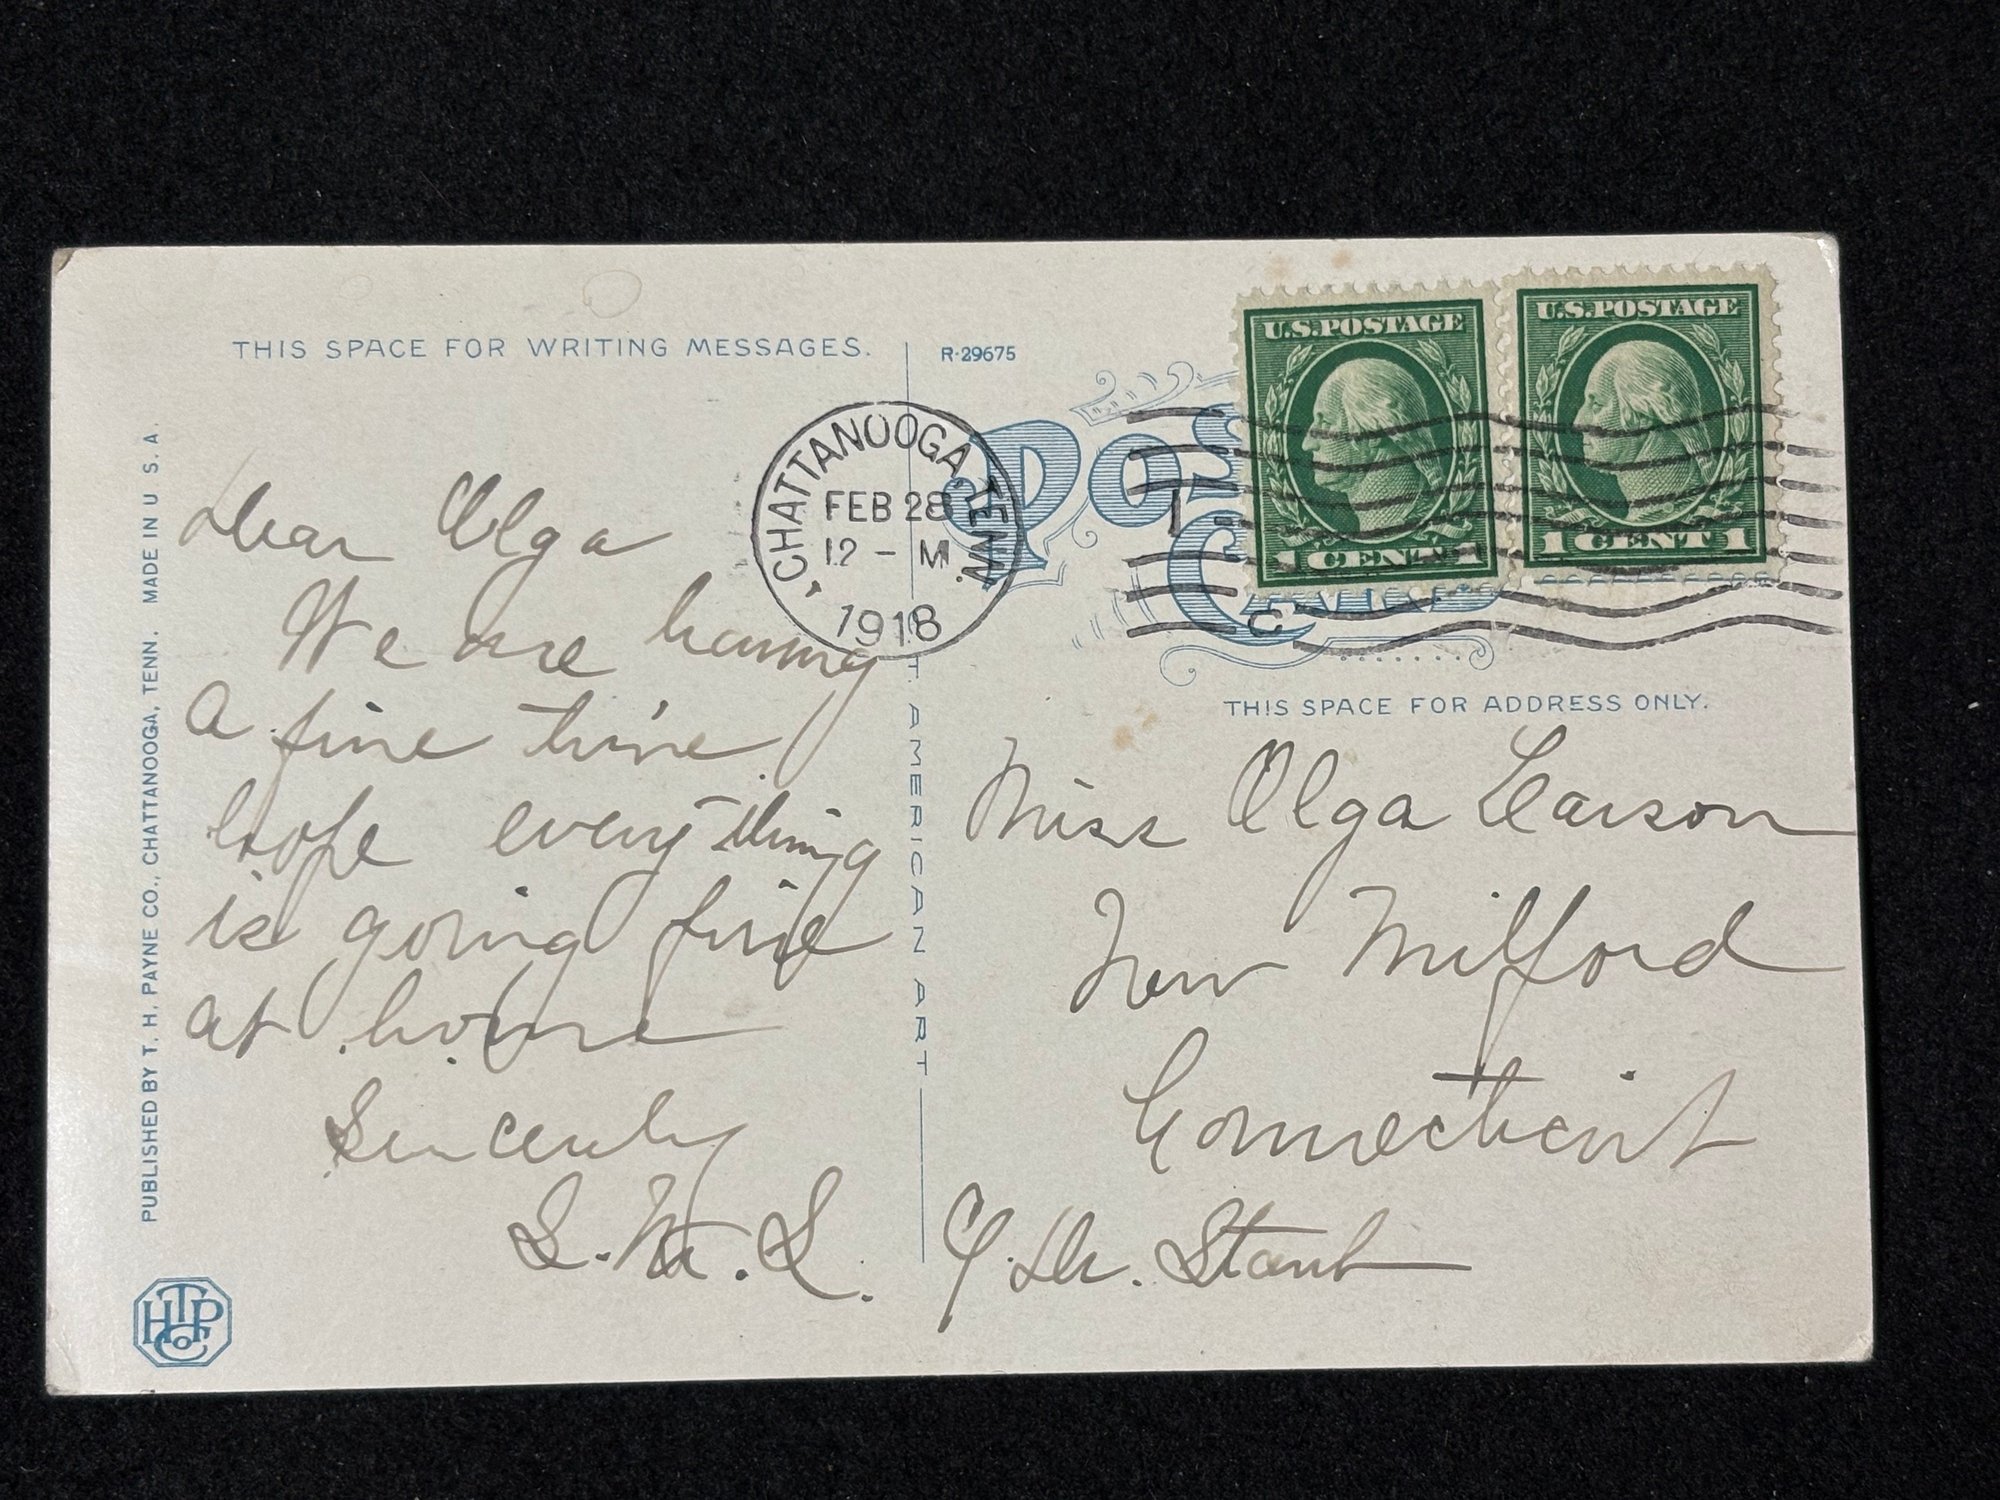 THIS SPACE FOR WRITING MESSAGES.
Dear Olga
We are having
a fine time.
hope everything
is going fine
at home
Sincerely
PUBLISHED BY T. H. PAYNE CO., CHATTANOOGA, TENN. MADE IN U. S. A.
HTP Co
CHATTANOOGA, TENN.
FEB 28
12 - M
1918
R-29675
POST CARD
U.S. POSTAGE
1 CENT 1
U.S. POSTAGE
1 CENT 1
T. AMERICAN ART
THIS SPACE FOR ADDRESS ONLY.
Miss Olga Larson
New Milford
Connecticut
Dr. Staub